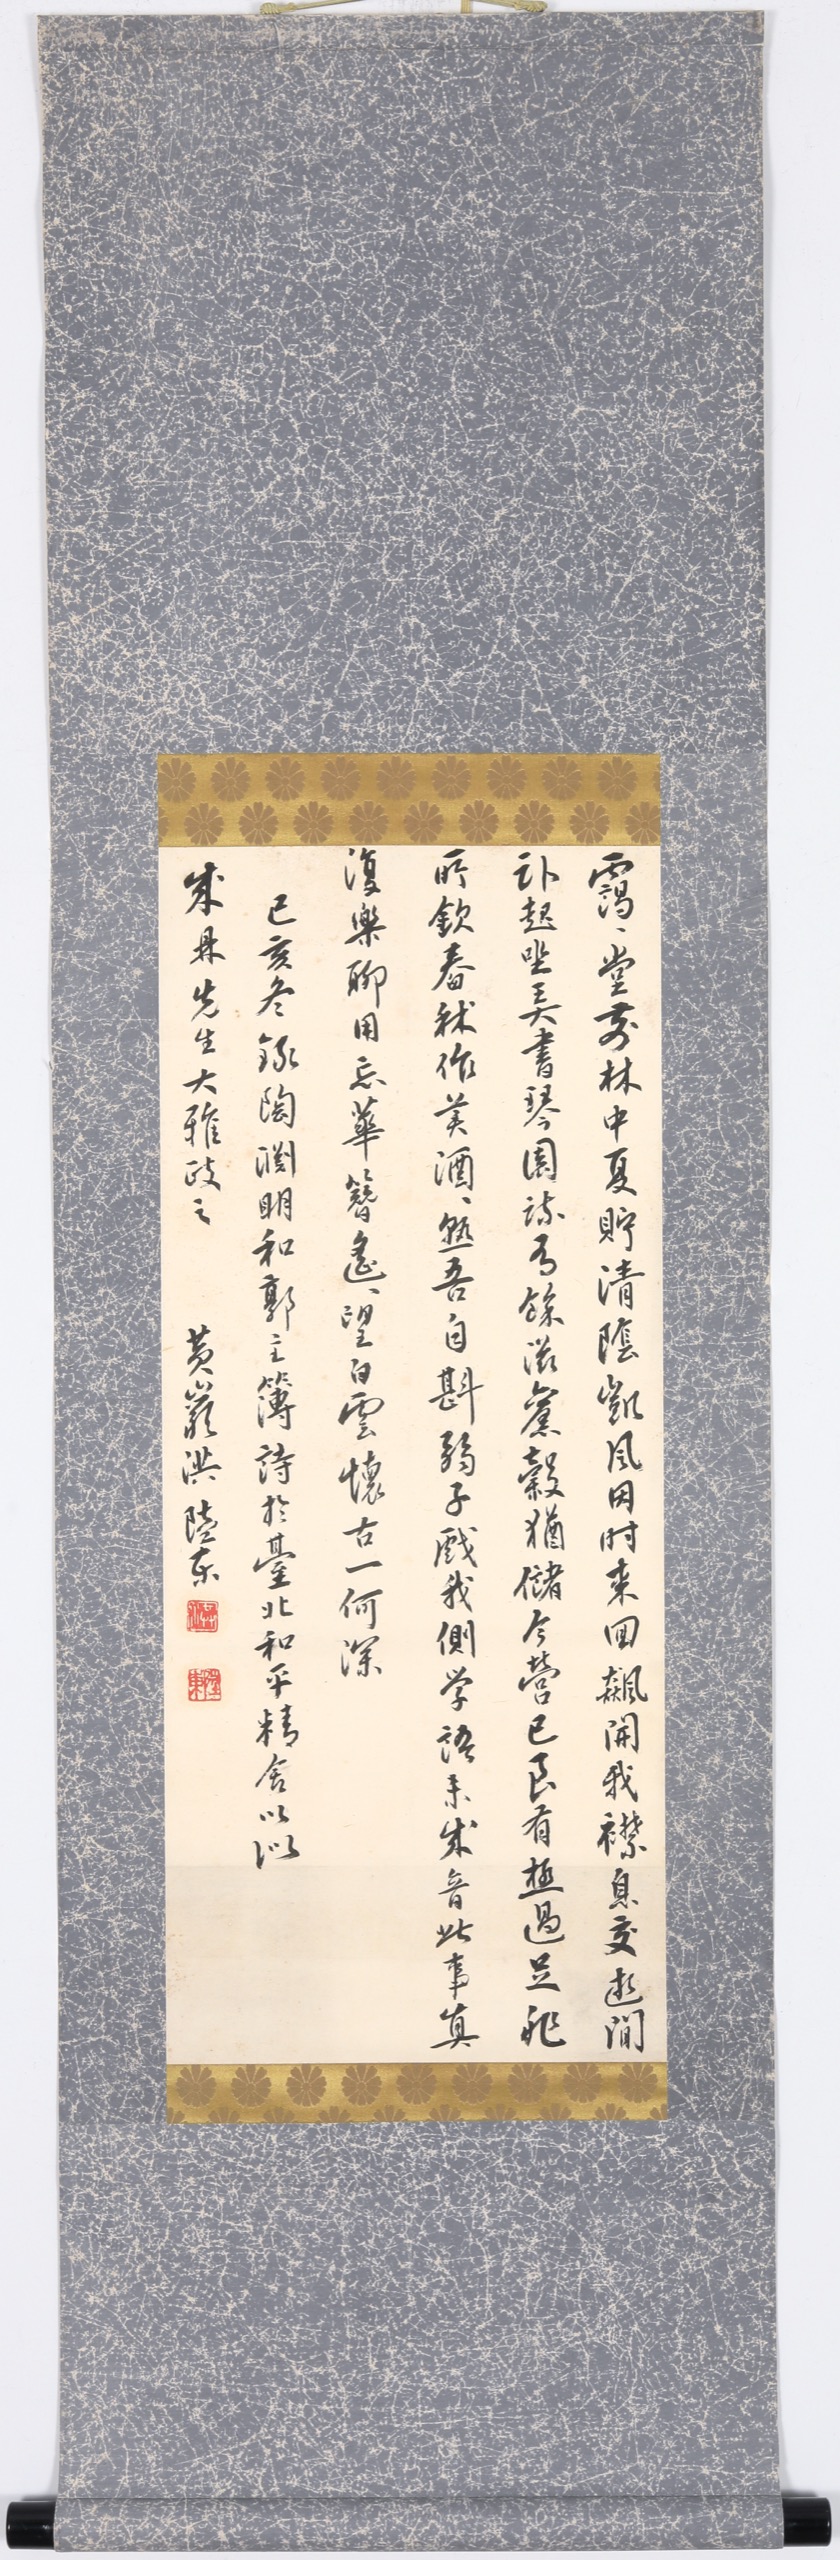 靄、堂前林中夏貯清陰凱风因时来回飆開我襟息交遊閒
卧起坐弄書琴園蔬有餘滋舊穀猶儲今營己良有極過足非
所欽舂秫作美酒、熟吾自斟弱子戲我側学語未成音此事真
復樂聊用忘華簪遙、望白雲懷古一何深
己亥冬錄陶渊明和郭主簿詩於臺北和平精舍以似
成林先生大雅政之 黄巖洪陸东
洪 陸東